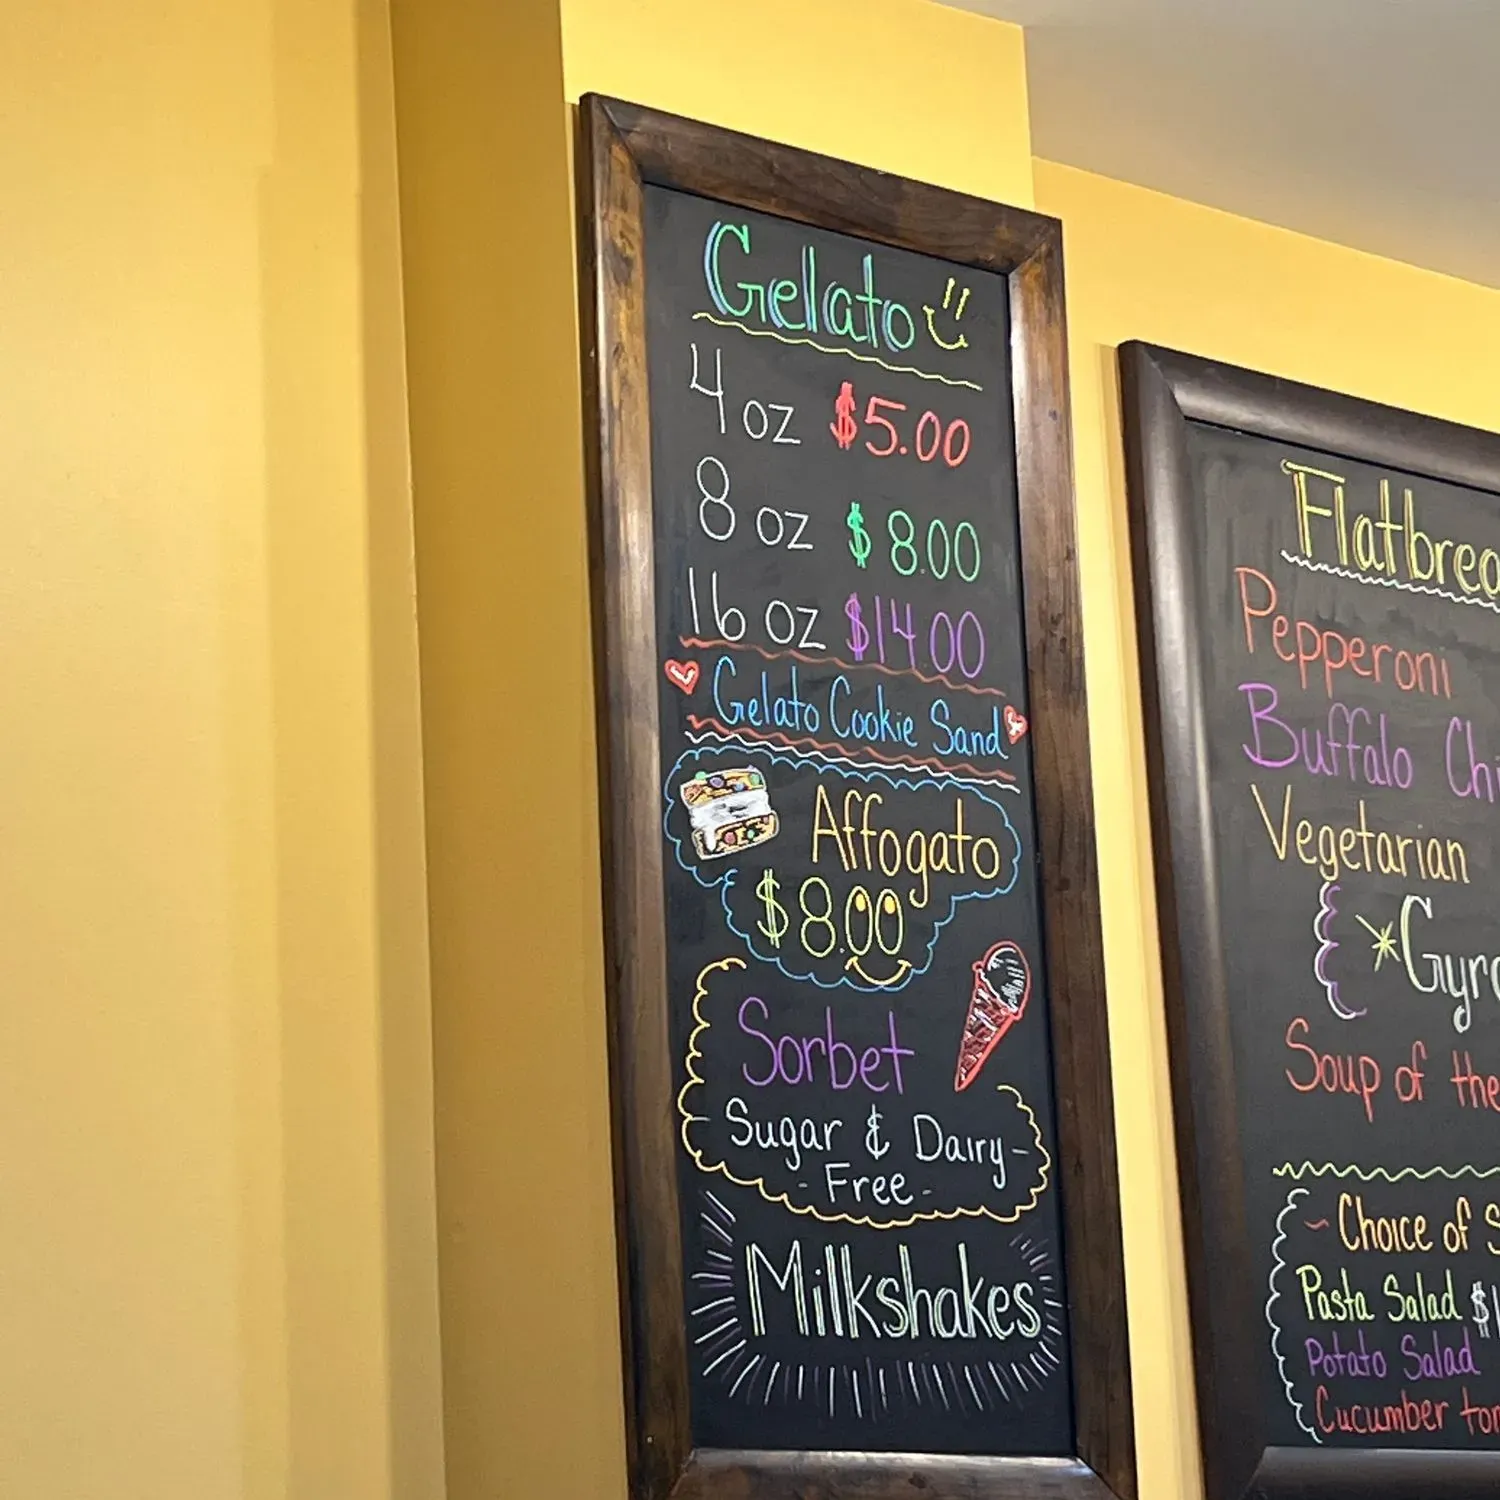 Gelato
4 oz $5.00
8 oz $8.00
16 oz $14.00
Gelato Cookie Sand
Affogato
$8.00
Sorbet
Sugar & Dairy-
- Free -
Milkshakes
Pepperoni
Buffalo
Vegetarian
*
Soup of the
~Choice of
Pasta Salad
Potato Salad
Cucumber